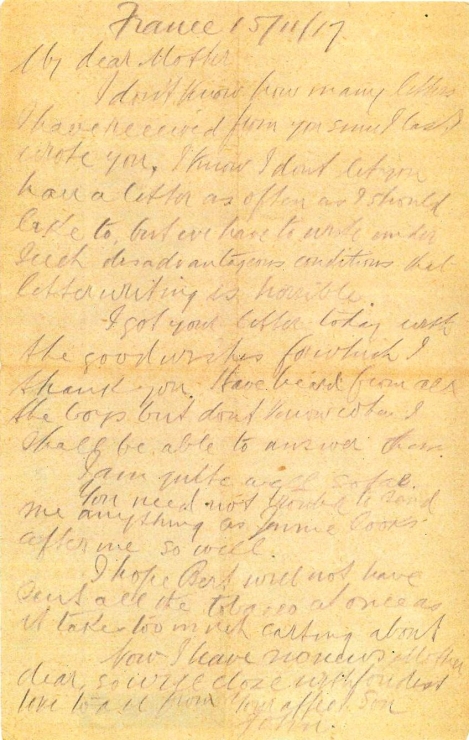 France 15/11/17
My dear Mother
I don't know how many letters
I have received from you since I last
wrote you. I know I don't let you
have a letter as often as I should
like to but we have to write under
such disadvantageous conditions that
letter writing is horrible.
I got your letter today with
the good wishes for which I
thank you. Have heard from all
the boys but dont know when I
shall be able to answer them.
I am quite well so far.
You need not trouble to send
me anything as Jennie looks
after me so well.
I hope Bert will not have
sent all the tobacco at once as
it takes too much carting about
Now I have no news Mother
dear, so will close with fondest
love to all from your affect. Son
John.